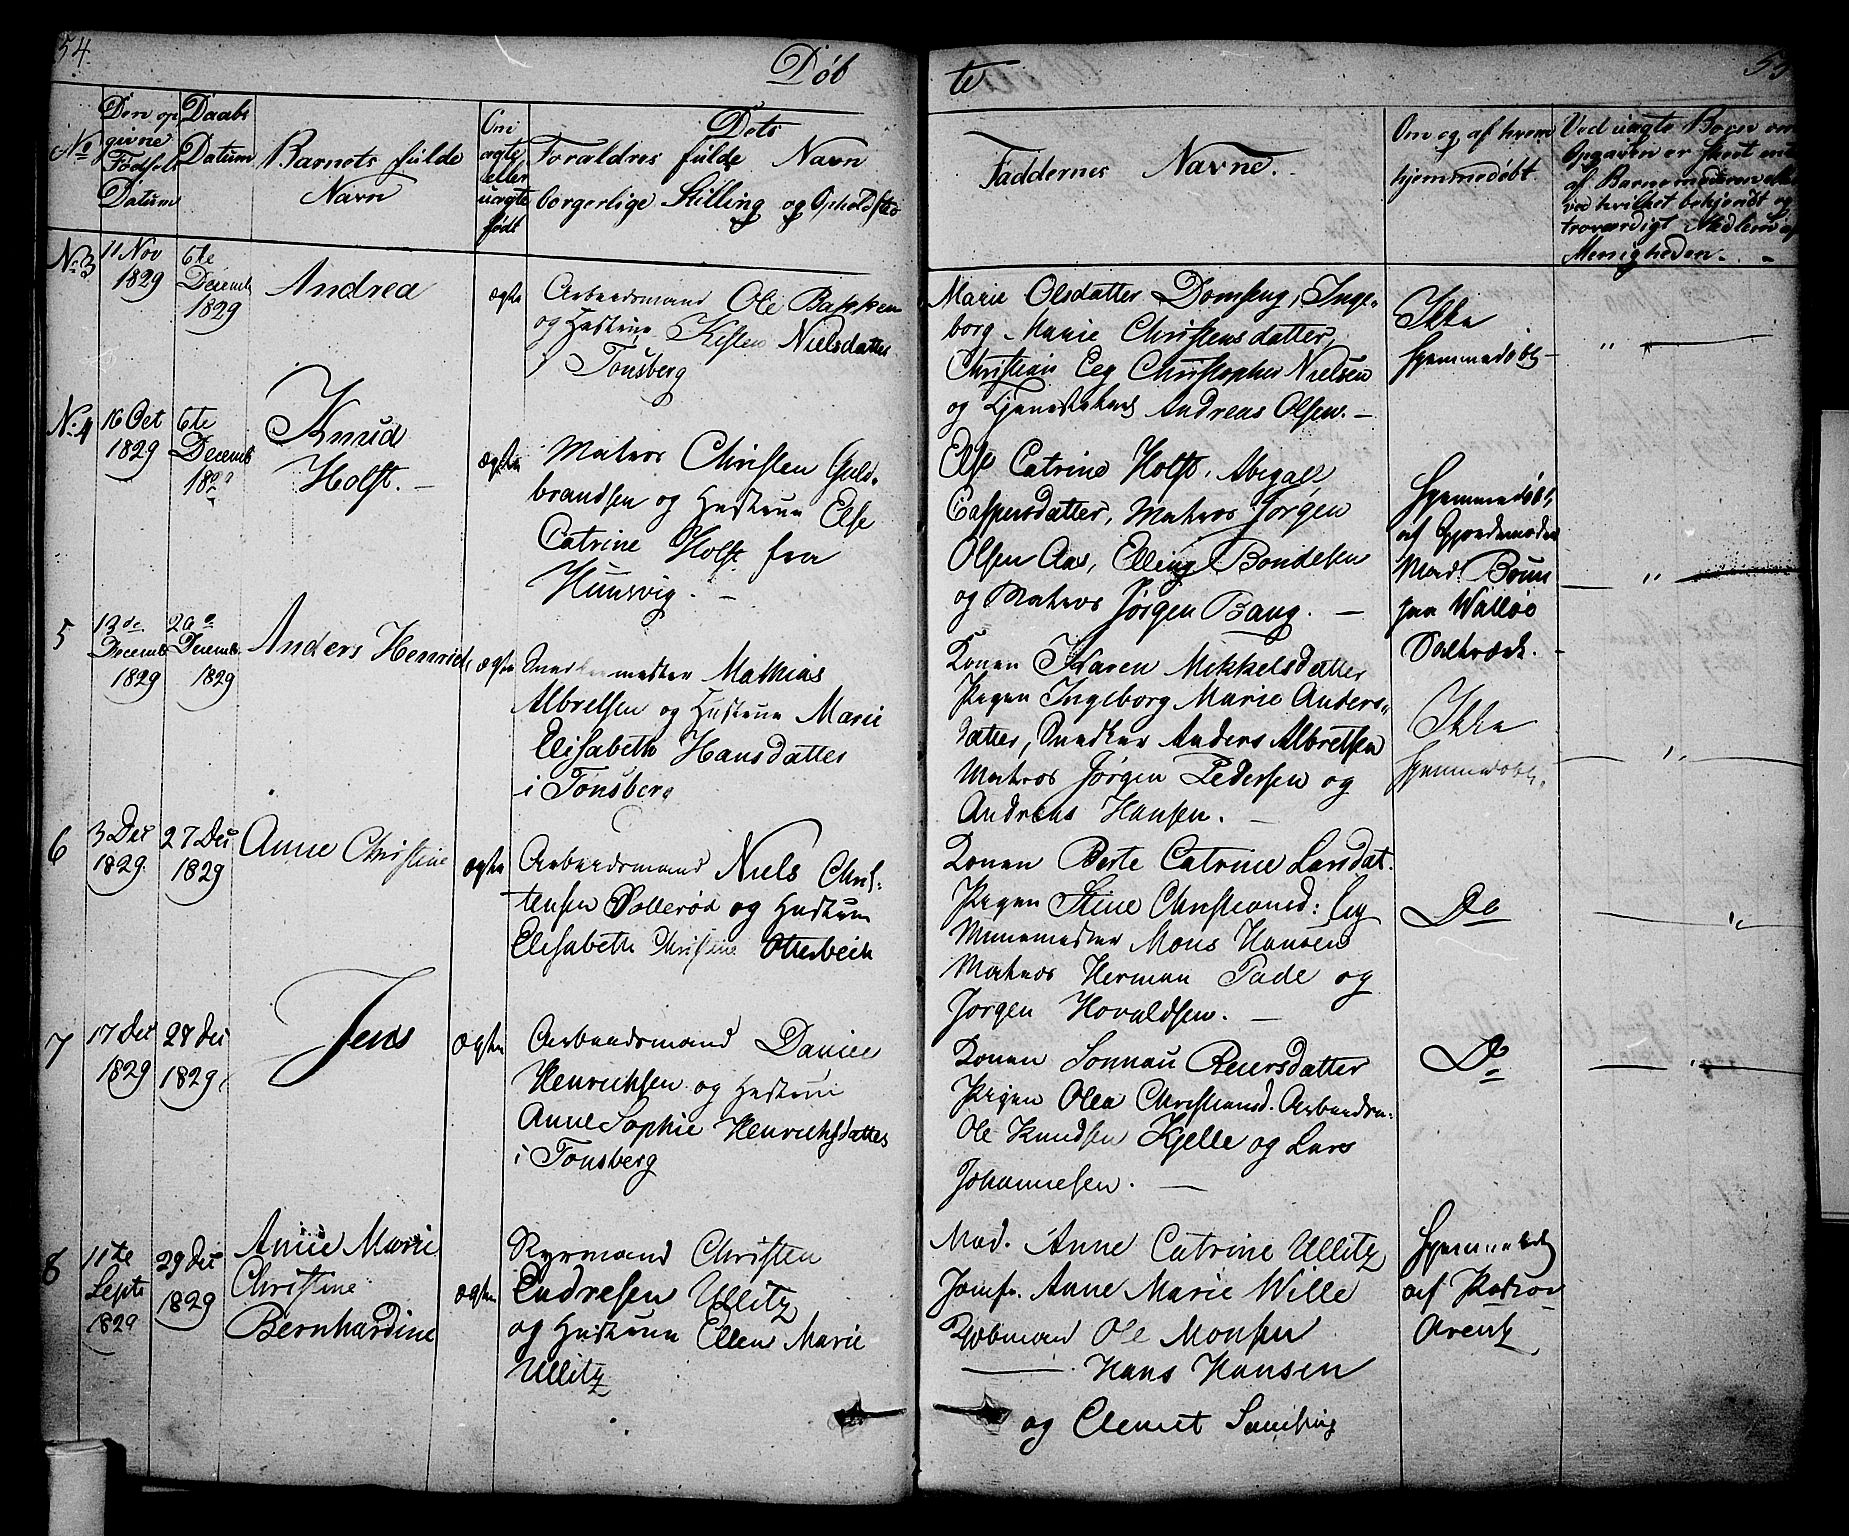 54.
Døb
No
Den op
givne
Fødsels
Datum
Daabs
Datum
Barnets fulde
Navn
Om
ægte
eller
uægte
født
Dets
Forældres fulde Navn
borgerlige Stilling og Opholdsted
No 3
11 Nov
1829
6te
Decemb
1829
Andrea
ægte
Arbeidsmand Ole Bakken
og Hustrue Kisten Nielsdatter
i Tønsberg
No 4
16 Oct
1829
6te
Decemb
1829
Knud
Holst. —
ægte
Matros Christen Guld-
brandsen og Hustrue Else
Catrine Holst fra
Huusvig. —
5
13de
Decemb
1829
Decemb.
1829
Anders Henrich
ægte
Snedkermester Mathias
Albretsen og Hustrue Marie
Elisabeth Hansdatter
i Tønsberg
6
3 Dec
1829.
27 Dec
1829
Anne Christine
ægte
Arbeidsmand Niels Chris-
tensen Sollerød og Hustrue
Elisabeth Christine Otterbech
7
17 Dec
1829
28 Dec
1829
Jens
ægte
Arbeidsmand Daniel
Henrichsen og Hustrue
Anne Sophie Henrichsdatter
i Tønsberg
8
11te
Septe
1829
29 Dec
1829
Anne Marie
Christine
Bernhardine
ægte
Styrmand Christen
Endresen Ullitz
og Hustrue Ellen Marie
Ullitz
te
55
Faddernes Navne.
Om og af hvem
hjemmedøbt
Ved uægte Børn om
Opgaven er skeet enten
af Barnemoderen eller
ved hvilket bekjendt og
troværdigt Medlem af
Menigheden. -
Marie Olsdatter Domseng, Inge-
borg Marie Christensdatter,
Christian Eeg Christopher Nielsen
og Tjenestekarl Andreas Olsen. —
Ikke
hjemmedøbt —
" —
Else Catrine Holst, Abigael
Caspersdatter, Matros Jørgen
Olsen Aas, Elling Bondesen
og Matros Jørgen Bang. —
Hjemmedøbt
af Gjordemoder
Mad. Bruun
paa Walløe
Saltværk.
— " —
Konen Karen Mikkelsdatter
Pigen Ingeborg Marie Anders-
datter, Snedker Anders Albretsen
Matros Jørgen Pedersen og
Andreas Hansen. —
Ikke
hjemmedøbt.
— " —
Konen Berte Catrine Larsdat.
Pigen Stine Christiansd: Eeg
Muurmester Mons Hansen
Matros Herman Pade og
Jørgen Hovaldsen. —
Do
— "
Konen Reiersdatter
Pigen Olea Christiansd. Arbeidsm:
Ole Knudsen Kjelle og Lars
Johannesen. —
Do
— " —
Mad. Anne Catrine Ullitz
Jomfr. Anne Marie Wille
Kobmand Ole Monsen
— Hans Hansen
og Clemet
Hjemmedøbt
af Pastor
Arentz